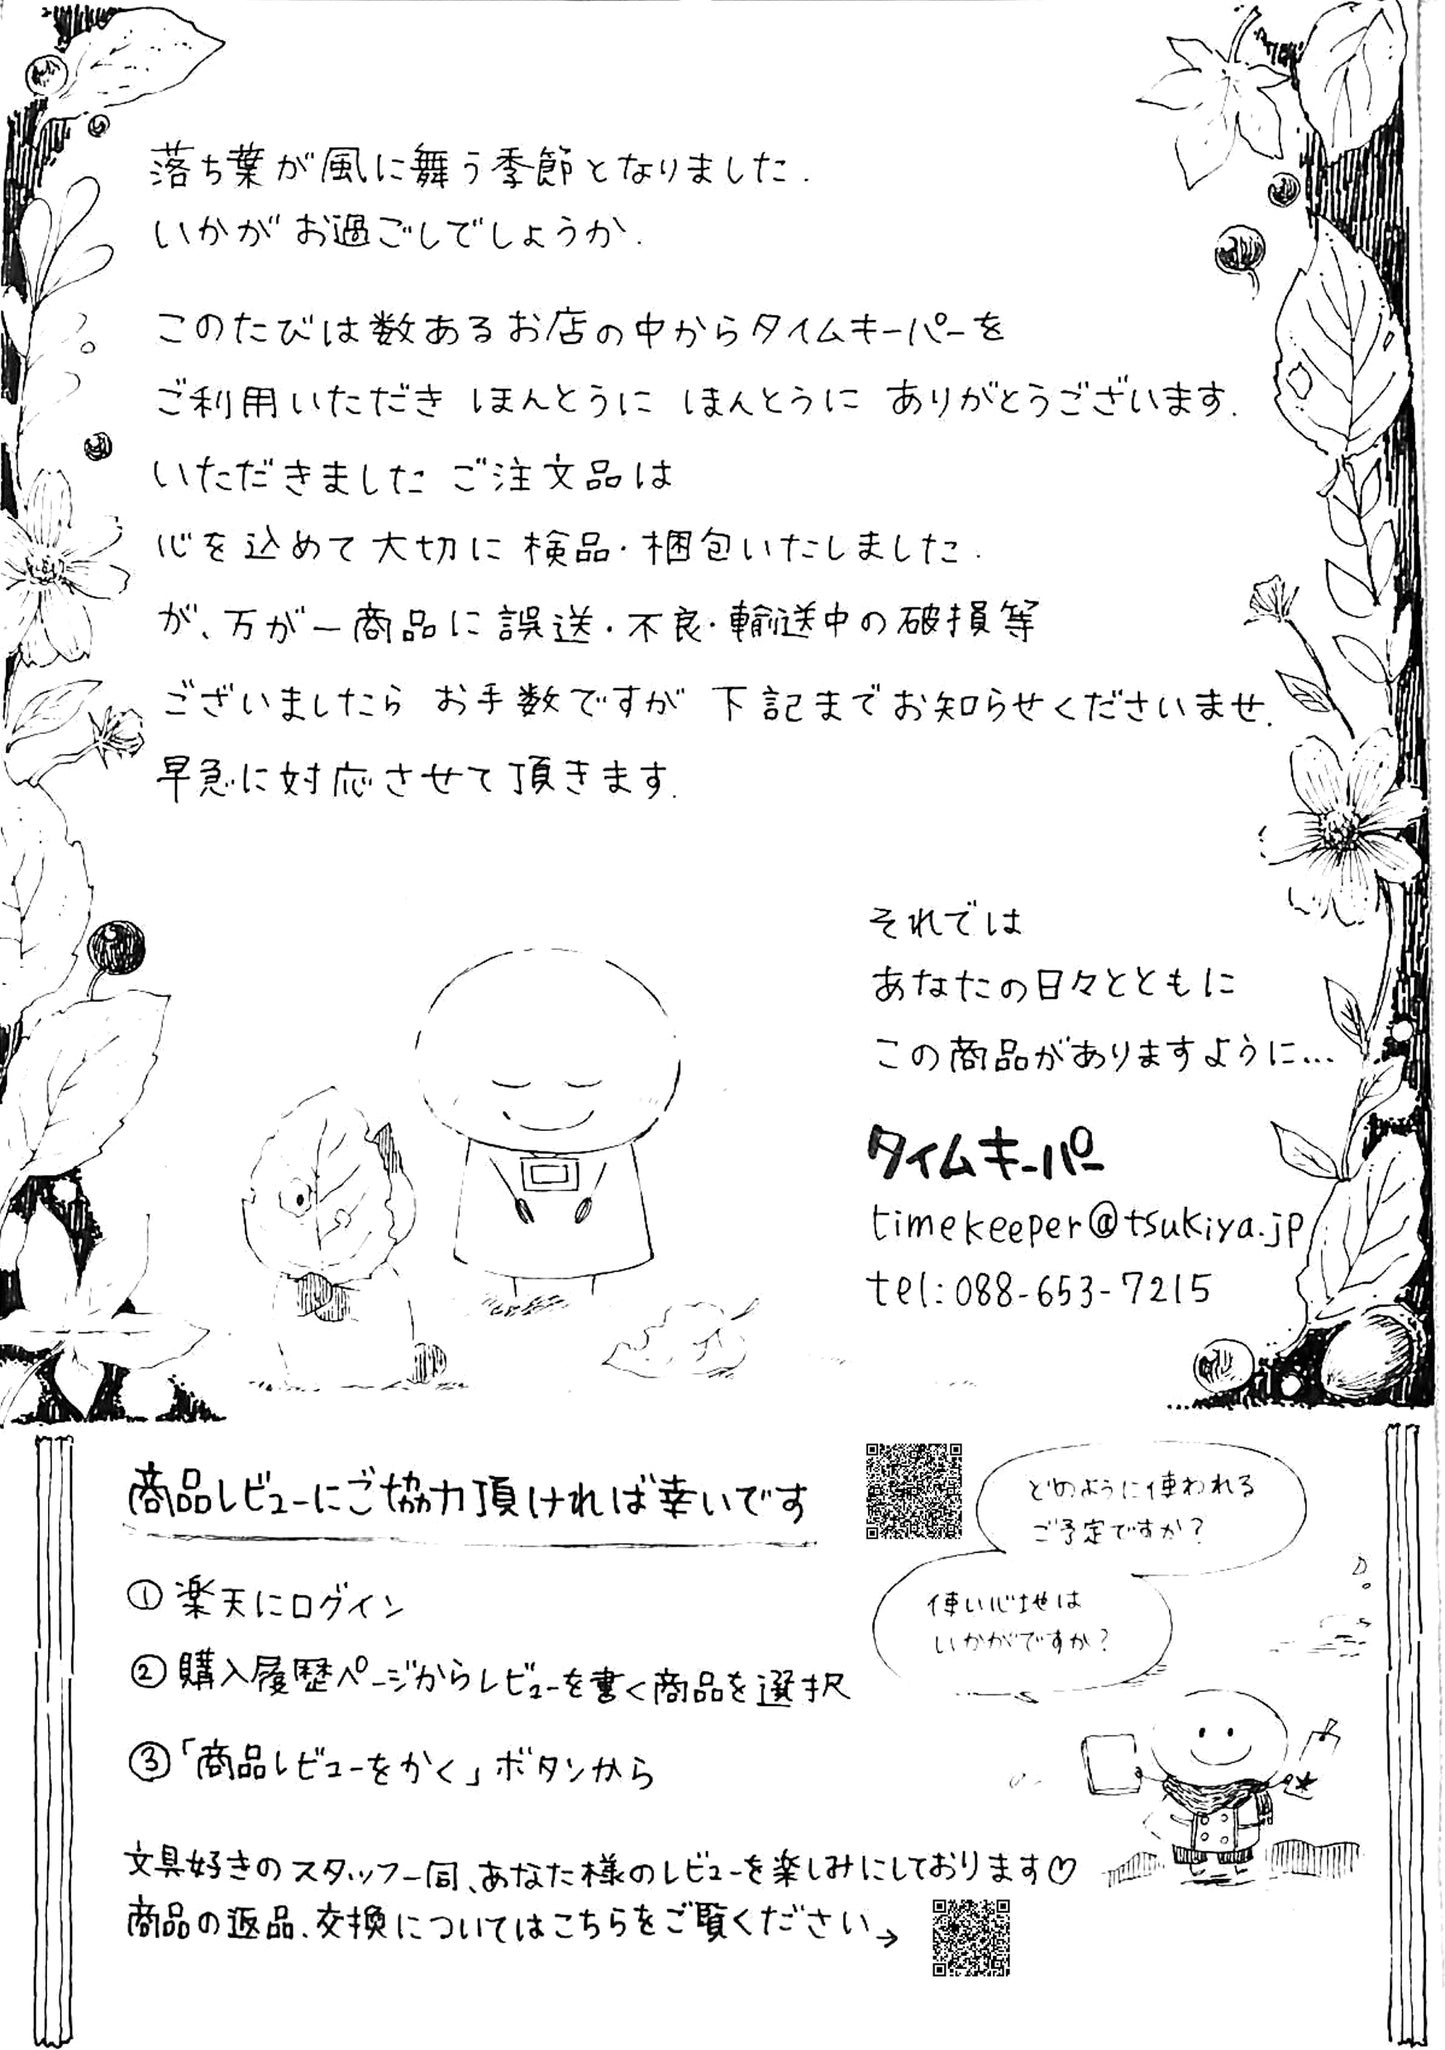 落ち葉が風に舞う季節となりました.
いかがお過ごしでしょうか.
このたびは数あるお店の中からタイムキーパーを
ご利用いただき ほんとうに ほんとうに ありがとうございます.
いただきました ご注文品は
心を込めて大切に 検品・梱包いたしました.
が、万が一商品に誤送・不良・輸送中の破損等
ございましたら お手数ですが 下記までお知らせくださいませ.
早急に対応させて頂きます.
それでは
あなたの日々とともに
この商品がありますように...
タイムキーパー
timekeeper@tsukiya.jp
tel:088-653-7215
商品レビューにご協力頂ければ幸いです
① 楽天にログイン
② 購入履歴ページからレビューを書く商品を選択
③「商品レビューをかく」ボタンから
どのように使われる
ご予定ですか?
使い心地は
いかがですか?
文具好きのスタッフ一同、あなた様のレビューを楽しみにしております♡
商品の返品、交換についてはこちらをご覧ください→